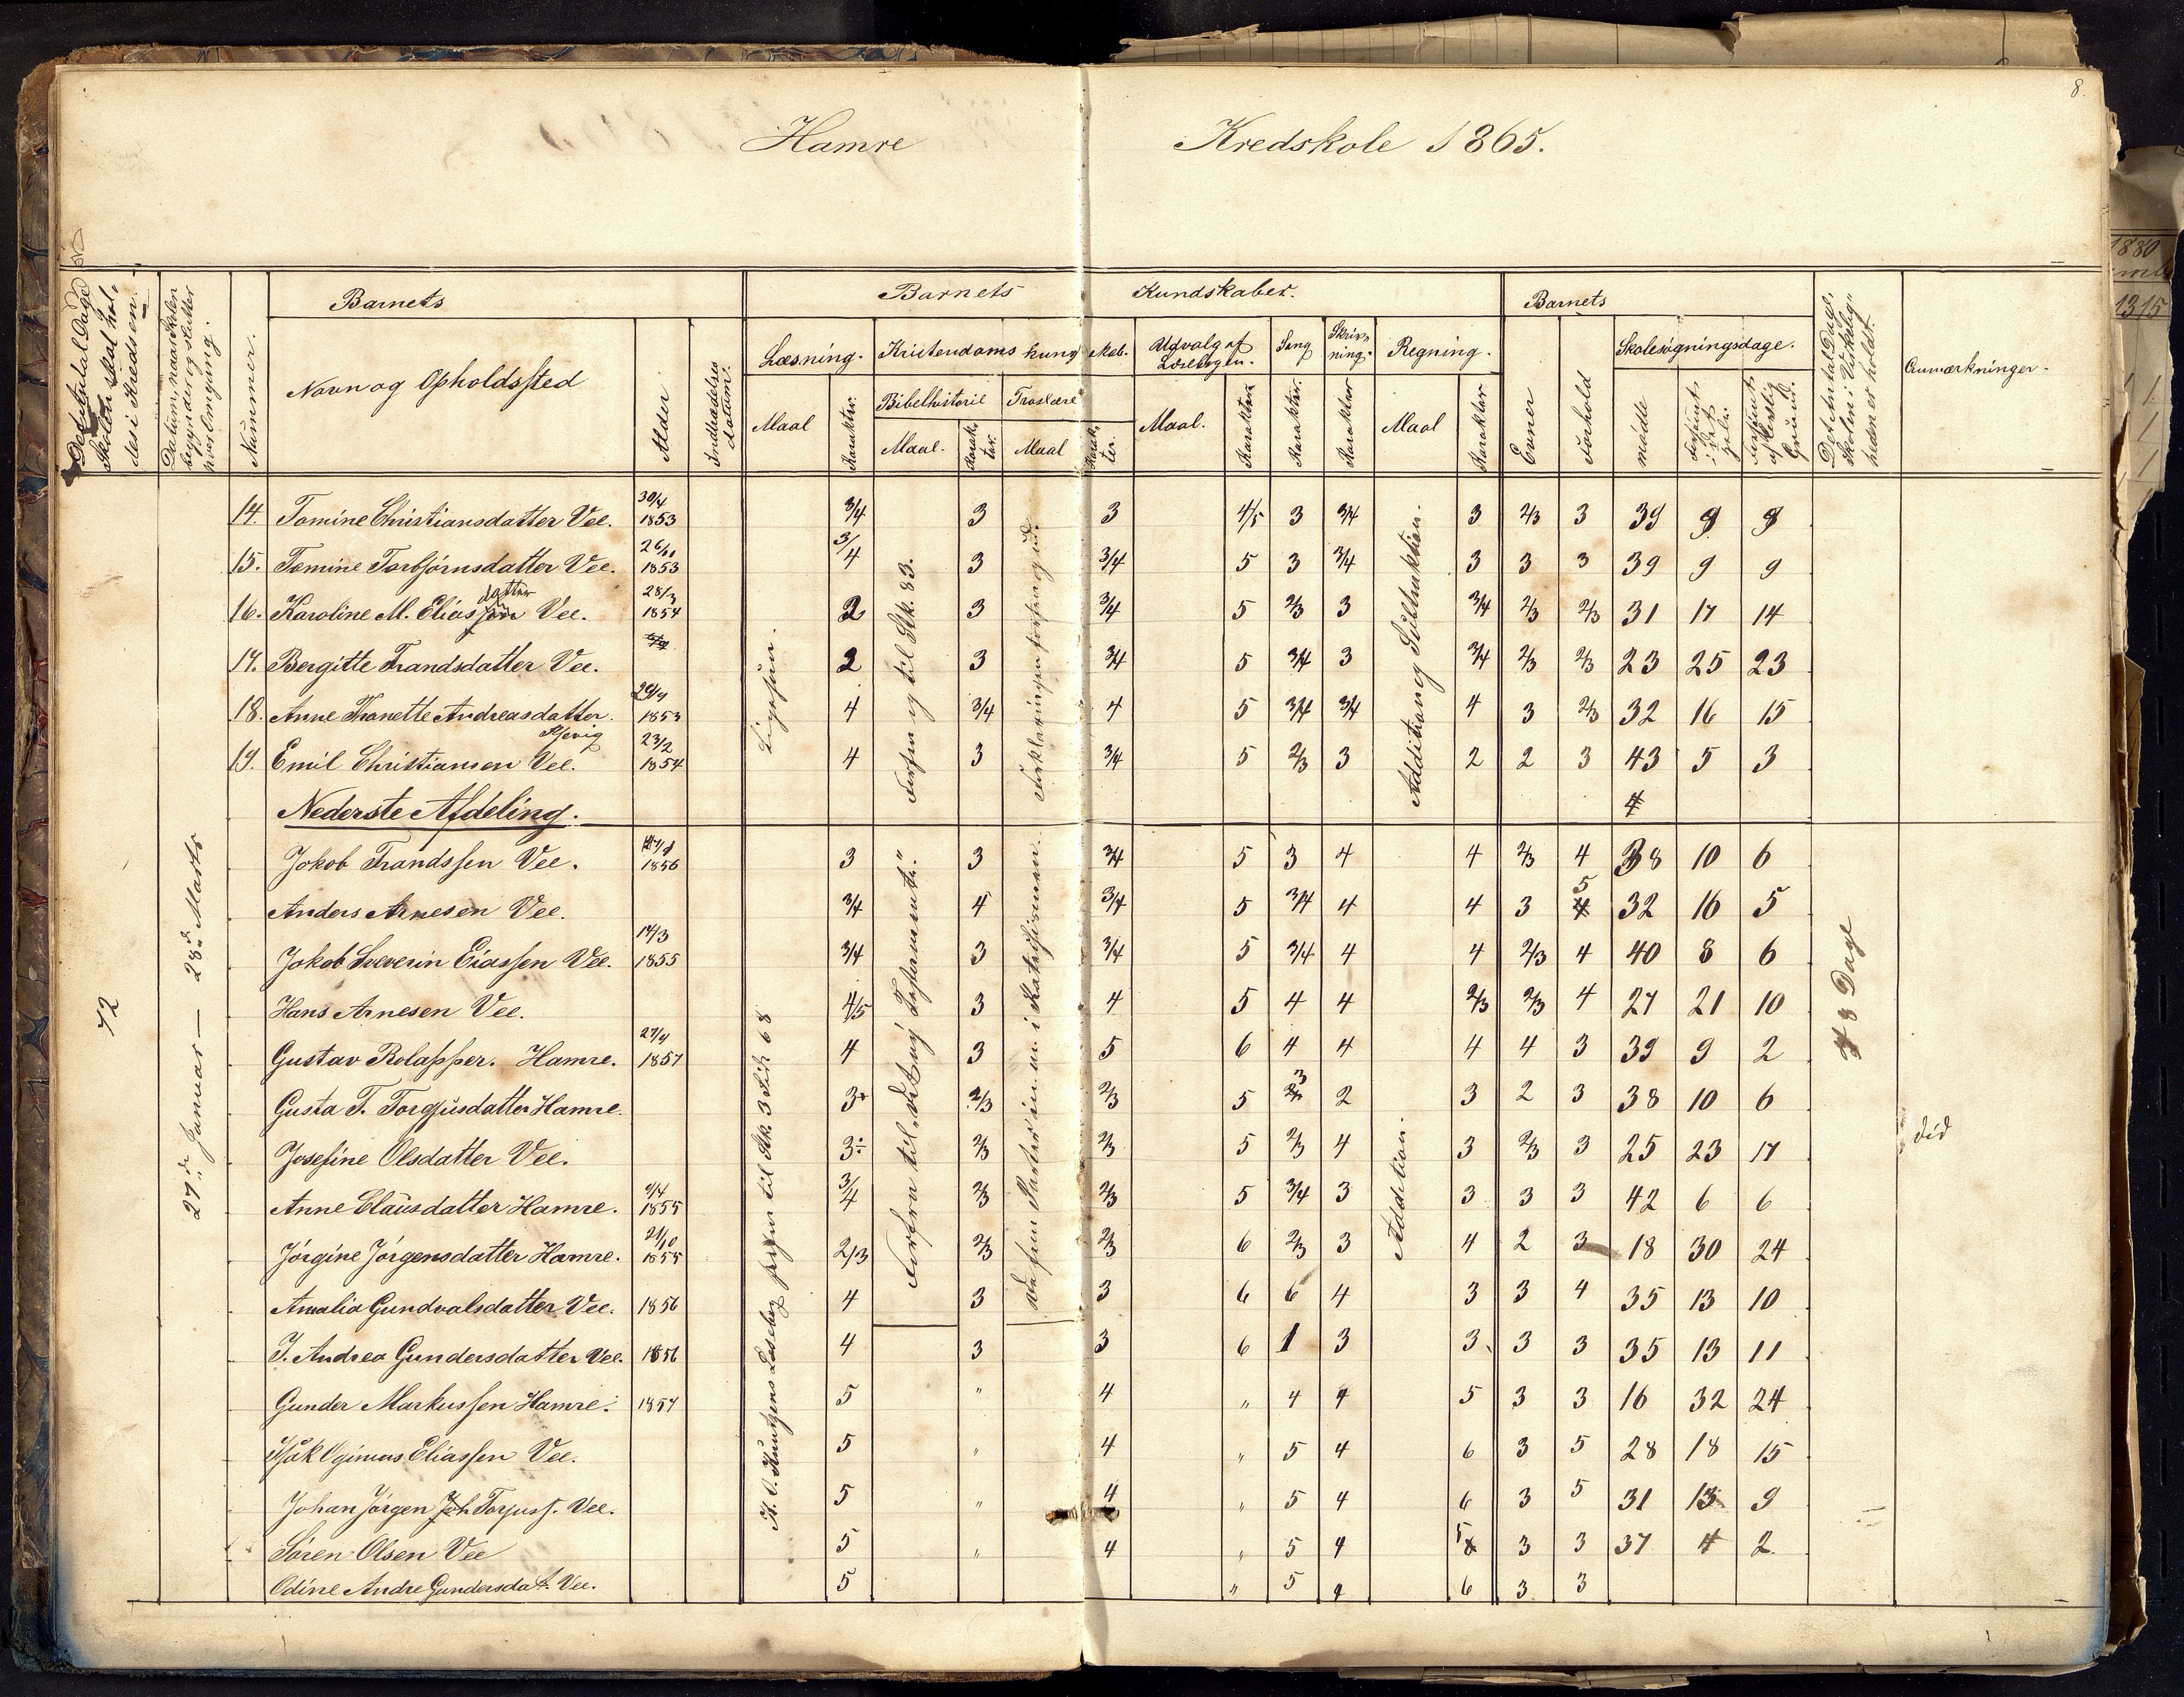 8.
Hamre Kredskole 1865.
Det Antal Dage Skolen skal holdes i Kredsen.
Datum, naar Skolen begynder og slutter hver Omgang.
Nummer.
Barnets
Navn og Opholdssted
Alder
Indtrædelses datum.
Barnets Kundskaber.
Læsning. Kristendomskundskab. Udvalg af Læsebogen. Sang Skrivning. Regning.
Bibelhistorie Troslære
Maal Karakter. Maal. Karakter. Maal Karakter. Maal. Karakter. Karakter. Karakter Maal Karakter.
Barnets
Evner Forhold
Skolesøgningsdage.
mødte forsømte i det hele forsømte af lovlig Grund.
Det Antal Dage, Skolen i Virkeligheden er holdt.
Anmærkninger.
72
27de Januar — 28de Marts
48 Dage
Ligesaa.
Forfra og til Stk. 83.
Forklaringen forfra og ud.
Addition og Subtraktion.
14. Tomine Christiansdatter Vee. 30/4 1853 3/4 3 3 4/5 3 3/4 3 2/3 3 39 9 9
15. Tomine Torbjørnsdatter Vee. 26/10 1853 3/4 3 3/4 5 3 3/4 3 3 3 39 9 9
16. Karoline M. Eliasdatter Vee. 28/3 1854 2 3 3/4 5 2/3 3 3/4 2/3 2/3 31 17 14
17. Bergitte Trandsdatter Vee. 2 3 3/4 5 3/4 3 3/4 2/3 2/3 23 25 23
18. Anne Thonette Andreasdatter. Kjevig 29/9 1853 4 3/4 4 5 3/4 3/4 4 3 2/3 32 16 15
19. Emil Christiansen Vee. 23/2 1854 4 3 3/4 5 2/3 3 2 2 3 43 5 3
Nederste Afdeling.
4
Jokob Trandssen Vee. 1856 3 3 3/4 5 3 4 4 2/3 4 38 10 6
Anders Arnesen Vee. 3/4 4 3/4 5 3/4 4 4 3 5 32 16 5
Jokob Severin Eiassen Vee. 14/3 1855 3/4 3 3/4 5 3/4 4 4 2/3 4 40 8 6
Hans Arnesen Vee. 4/5 3 4 5 4 4 2/3 2/3 4 27 21 10
Gustav Rolafsser. Hamre. 27/9 1857 4 3 5 6 4 4 4 4 3 39 9 2
Gusta T. Torgjusdatter Hamre. 3+ 2/3 2/3 5 3 2 3 2 3 38 10 6
Josefine Olsdatter Vee. 3÷ 2/3 2/3 5 2/3 4 3 2/3 3 25 23 17 død
Anne Clausdatter Hamre. 9/4 1855 3/4 2/3 2/3 5 3/4 3 3 3 3 42 6 6
Jørgine Jørgensdatter Hamre. 21/10 1855 2/3 2/3 2/3 6 2/3 3 4 2 3 18 30 24
Amalia Gundvalsdatter Vee. 1856 4 3 3 6 6 4 3 3 4 35 13 10
T. Andrea Gundersdatter Vee. 1856 4 3 3 6 1 3 3. 3 3 35 13 11
Gunder Markussen Hamre. 1857 5 " 4 " 4 4 5 3 3 16 32 24
Isak Oginius Eliassen Vee. 5 " 4 " 5 4 6 3 5 28 18 15
Johan Jørgen Joh Torjuss. Vee. 5 " 4 " 5 4 6 3 5 31 13 9
Søren Olsen Vee 5 " 4 " 5 4 5 3 3 37 4 2
Odine Andre Gundersdat. Vee. 5 " 5 4 6 3 3
Læsebog til Stk. 3 Side 68
Forfra til "det ny Testamente."
De fem Parter inden i Katekismusen.
Addition.
1880
1315